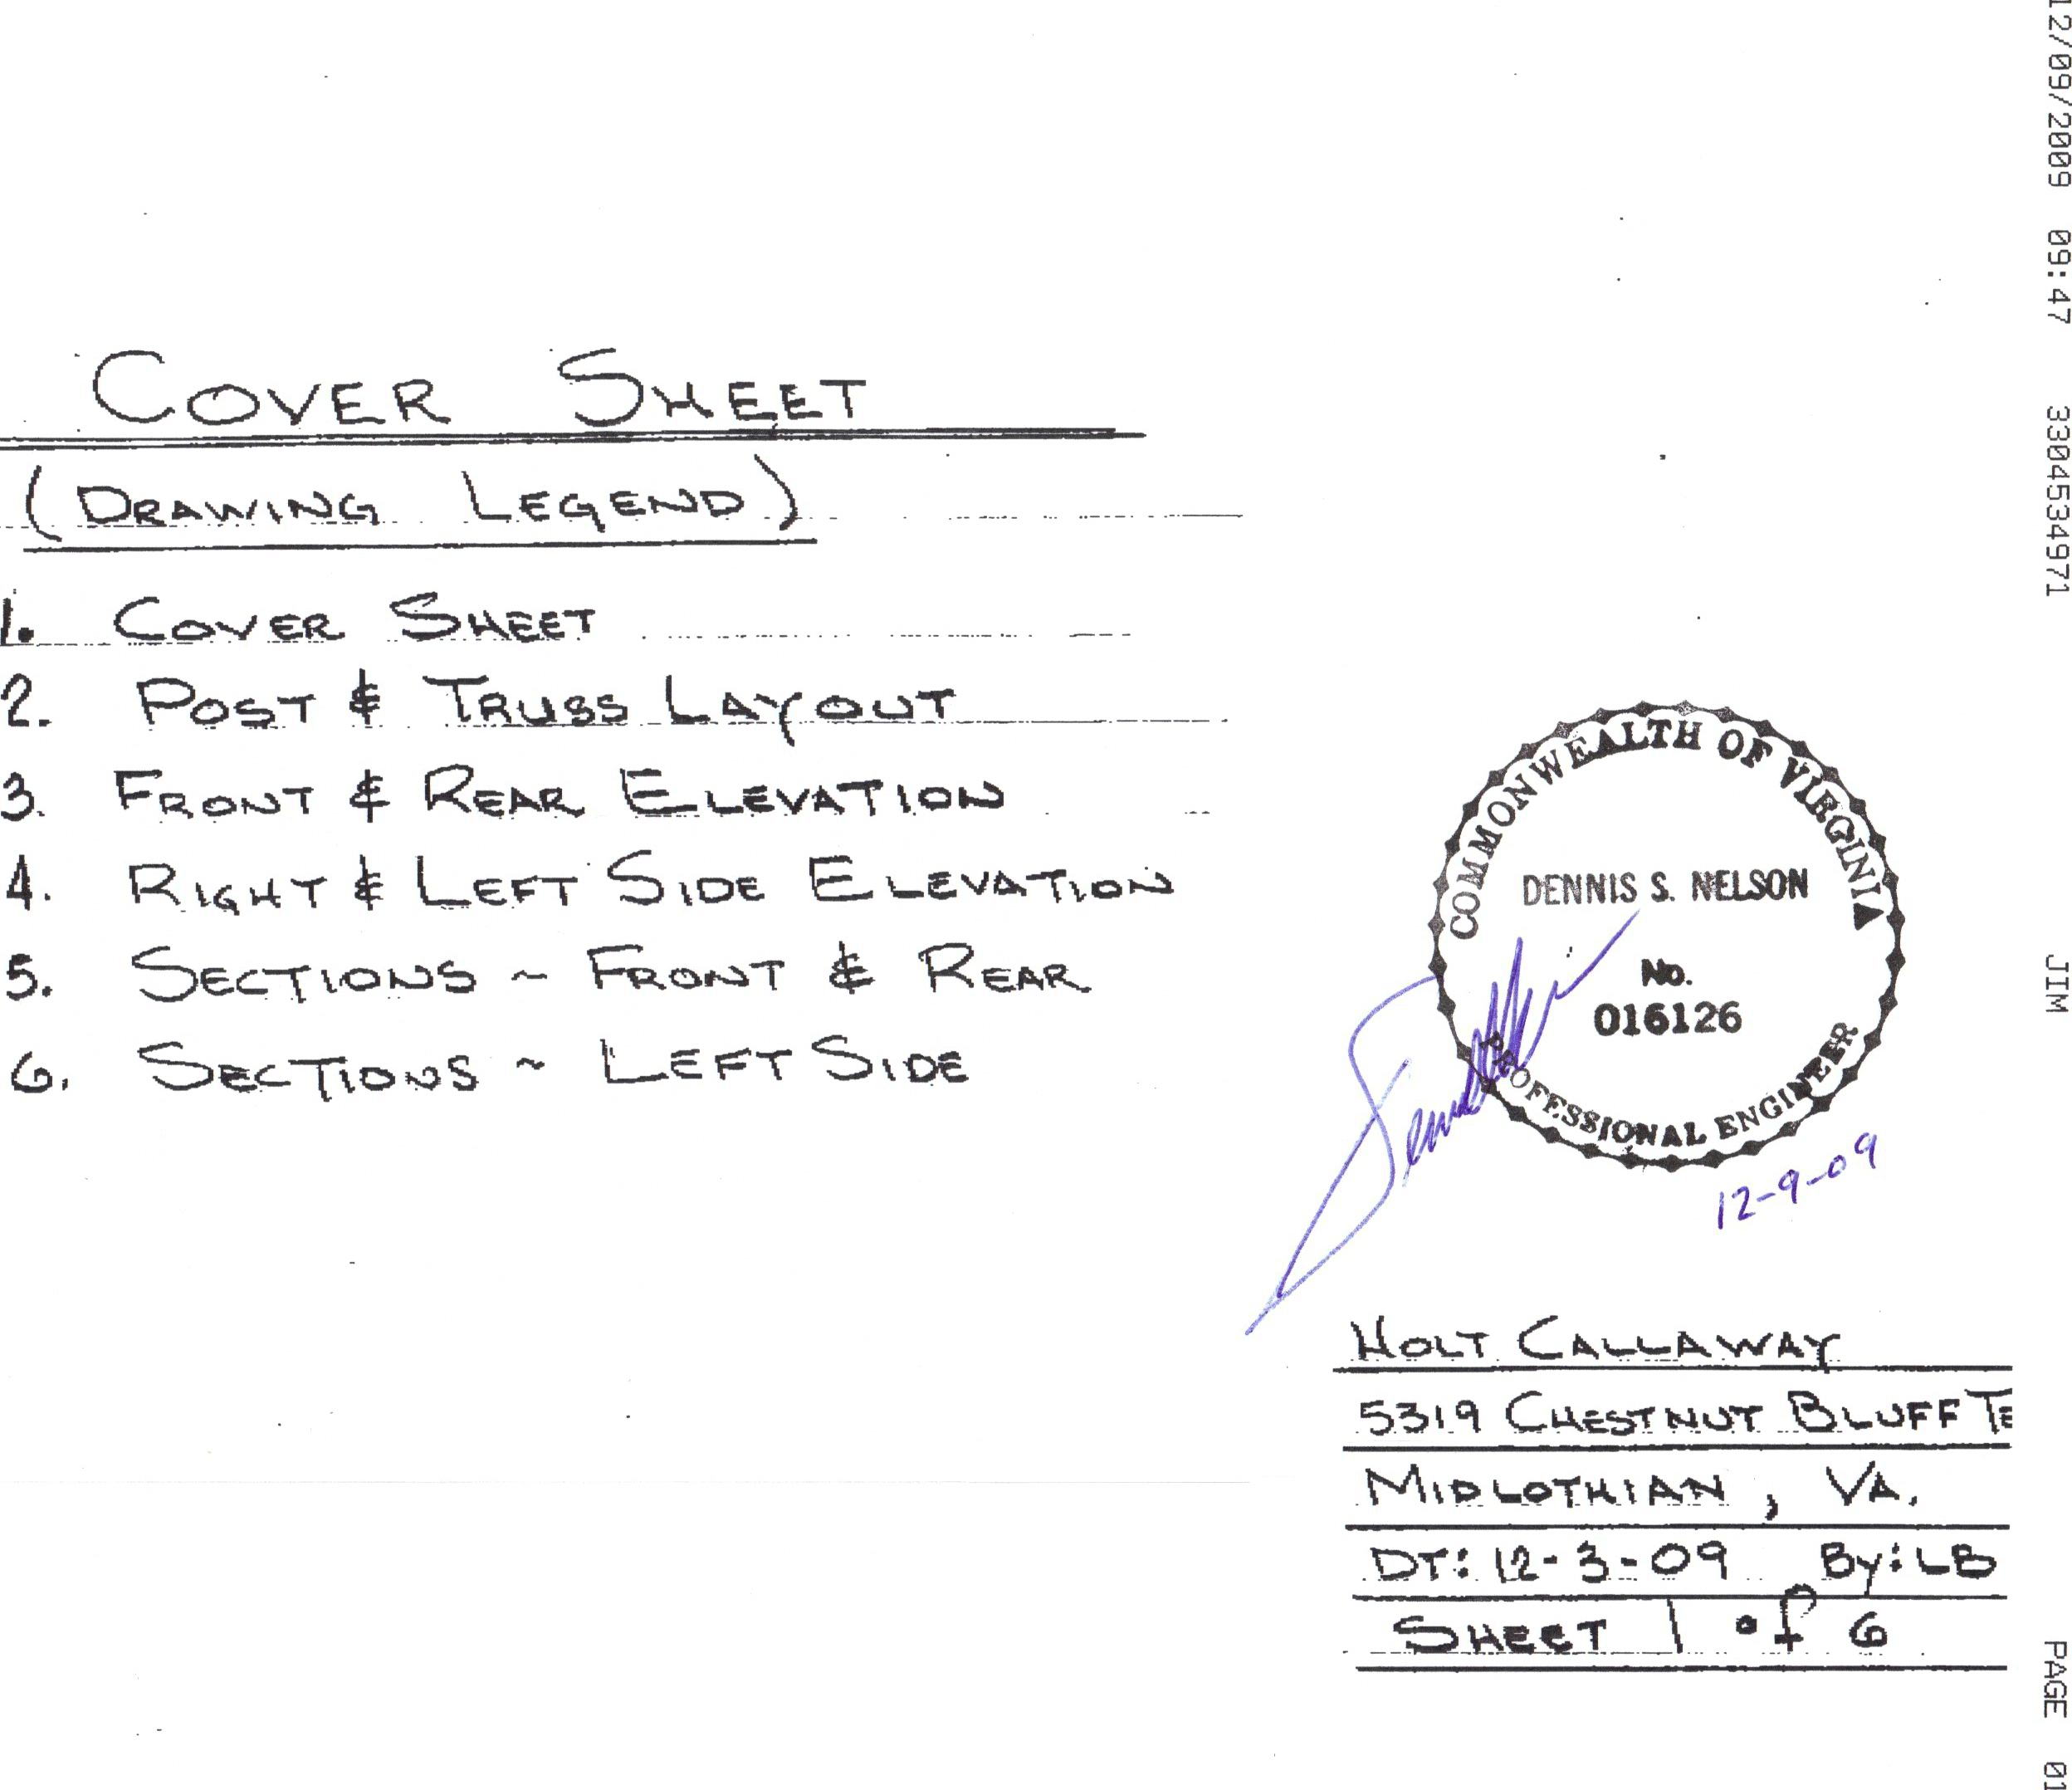 COVER SHEET
(DRAWING LEGEND)
1. COVER SHEET
2. POST & TRUSS LAYOUT
3. FRONT & REAR ELEVATION
4. RIGHT & LEFT SIDE ELEVATION
5. SECTIONS ~ FRONT & REAR
6. SECTIONS ~ LEFT SIDE
COMMONWEALTH OF VIRGINIA
DENNIS S. NELSON
No.
016126
PROFESSIONAL ENGINEER
12-9-09
HOLT CALLAWAY
5319 CHESTNUT BLUFF TE
MIDLOTHIAN, VA.
DT: 12-3-09 By: LB
SHEET 1 of 6
12/09/2009 09:47 3304534971 JIM PAGE 01